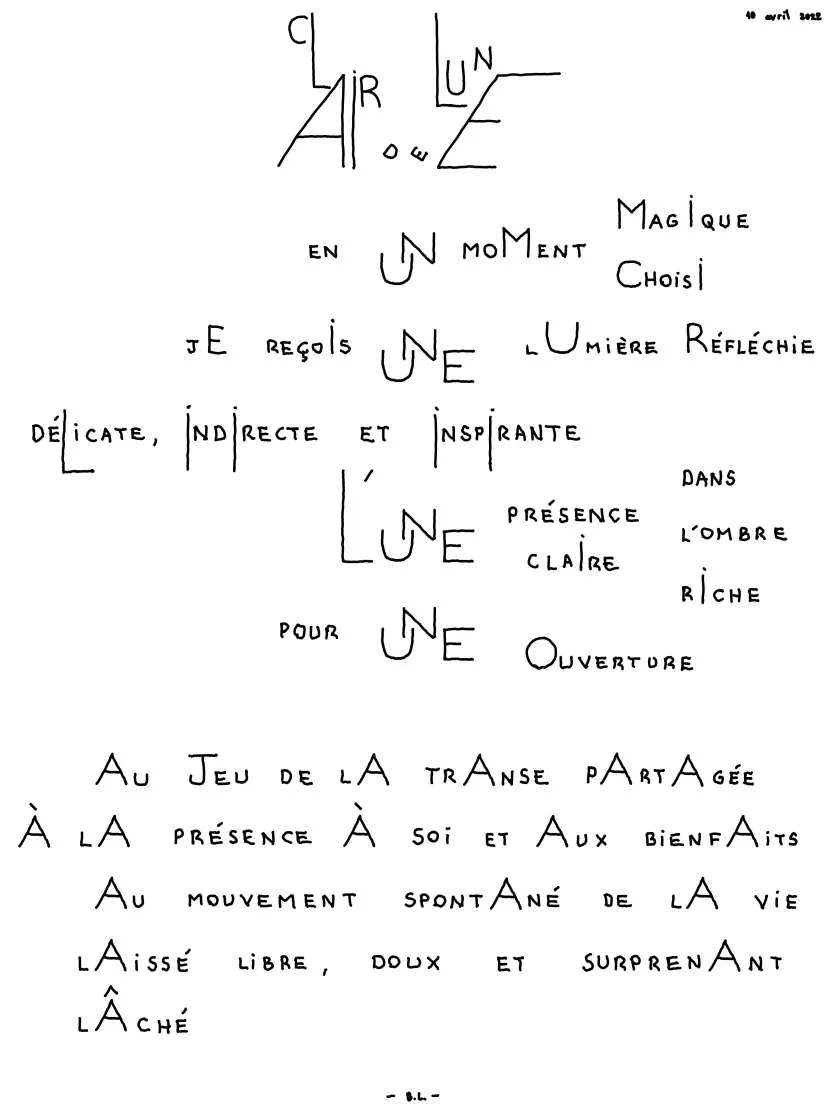 10 avril 2022
CLAIR DE LUNE
EN UN MOMENT MAGIQUE
CHOISI
JE REÇOIS UNE LUMIÈRE RÉFLÉCHIE
DÉLICATE, INDIRECTE ET INSPIRANTE
L'UNE PRÉSENCE CLAIRE
DANS L'OMBRE RICHE
POUR UNE OUVERTURE
AU JEU DE LA TRANSE PARTAGÉE
À LA PRÉSENCE À SOI ET AUX BIENFAITS
AU MOUVEMENT SPONTANÉ DE LA VIE
LAISSÉ LIBRE, DOUX ET SURPRENANT
LÂCHÉ
- B.L. -